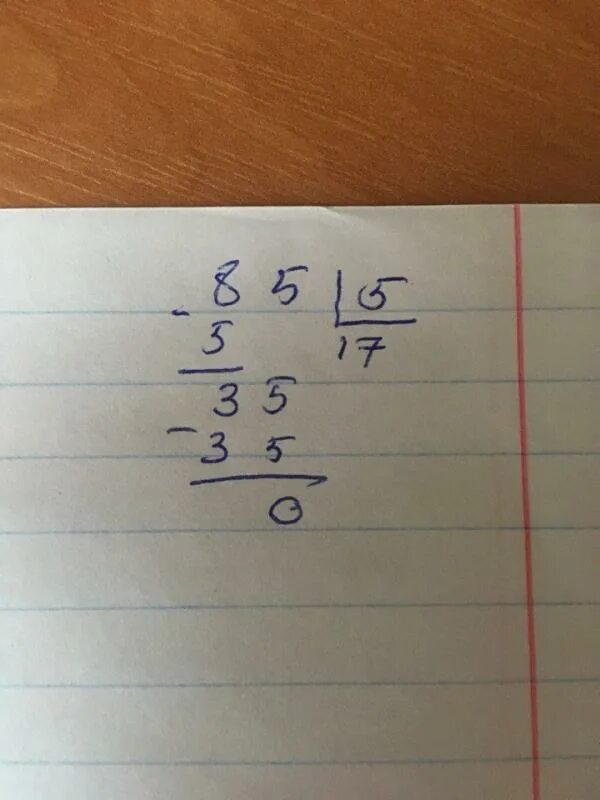 85 | 5
- 5 17
35
- 35
0